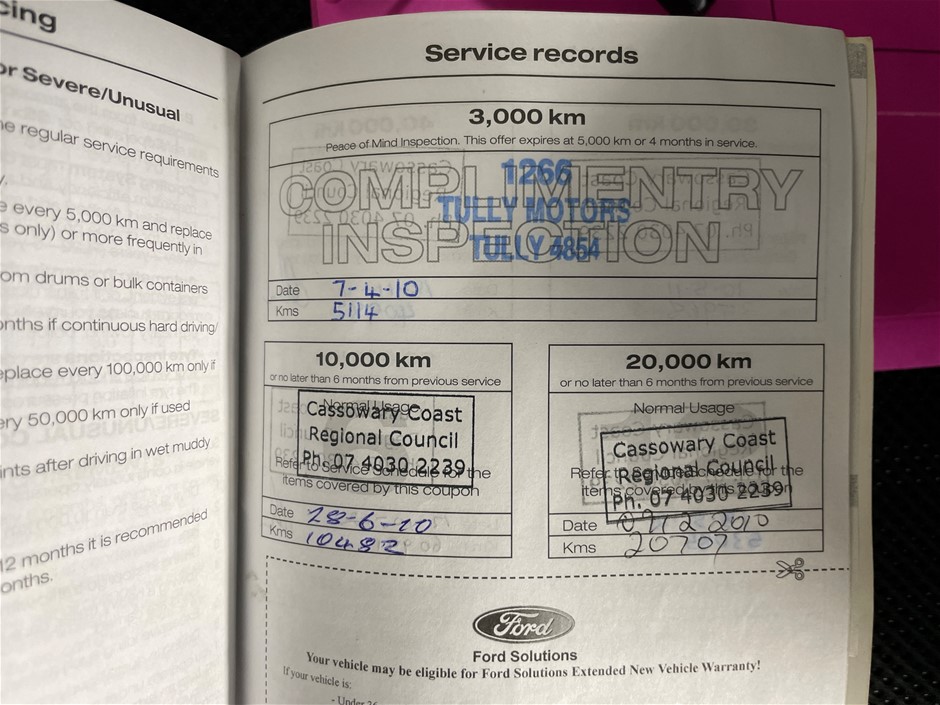 cing
or Severe/Unusual
he regular service requirements
y.
e every 5,000 km and replace
s only) or more frequently in
om drums or bulk containers
onths if continuous hard driving/
eplace every 100,000 km only if
ery 50,000 km only if used
ints after driving in wet muddy
12 months it is recommended
onths.
Service records
3,000 km
Peace of Mind Inspection. This offer expires at 5,000 km or 4 months in service.
COMPLIMENTRY
INSPECTION
1266
TULLY MOTORS
TULLY 4854
Date 7-4-10
Kms 5114
10,000 km
or no later than 6 months from previous service
Normal Usage
Cassowary Coast
Regional Council
Ph. 07 4030 2239
Refer to Service Schedule for the
items covered by this coupon
Date 28-6-10
Kms 10482
20,000 km
or no later than 6 months from previous service
Normal Usage
Cassowary Coast
Regional Council
Ph. 07 4030 2239
Refer to Service Schedule for the
items covered by this coupon
Date
Kms 20707
Ford
Ford Solutions
Your vehicle may be eligible for Ford Solutions Extended New Vehicle Warranty!
If your vehicle is:
- Under